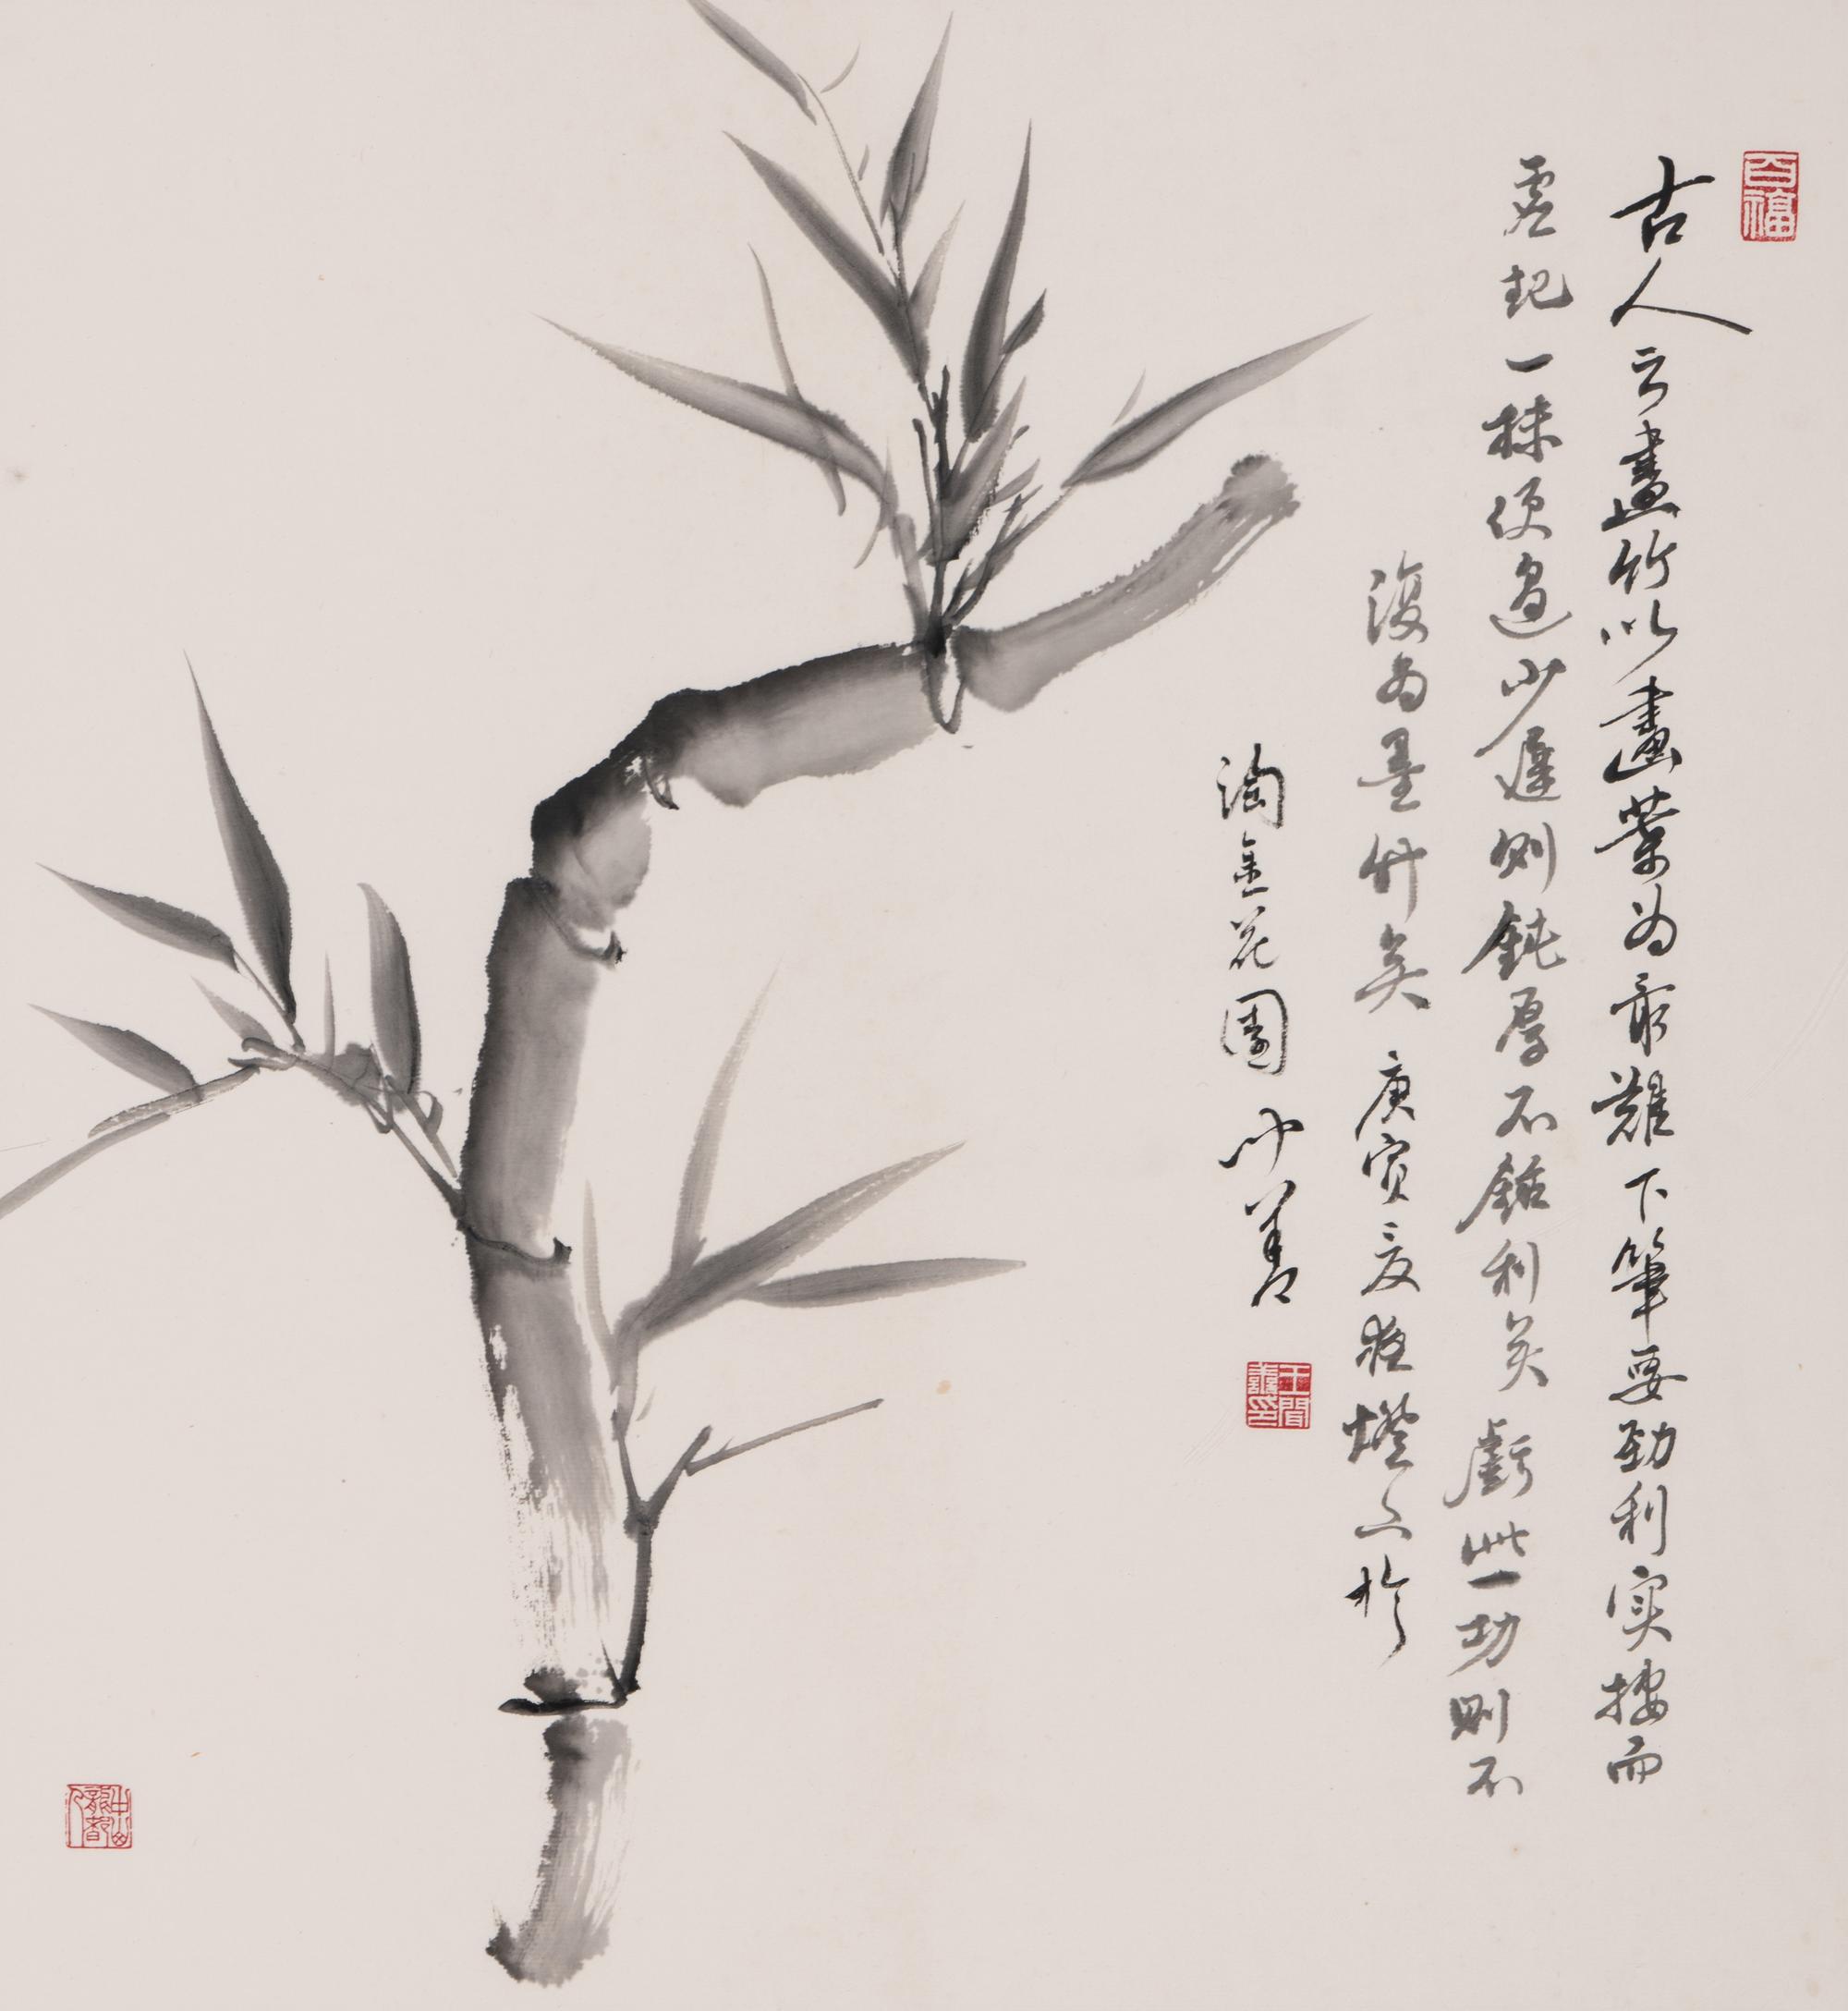 百福
古人云畫竹以畫葉為最難下筆要勁利实按而
虛起一抹便過少遲則鈍厚不銛利矣虧此一功則不
復為墨竹矣 庚寅夏夜燈下於
淘金花園 少善